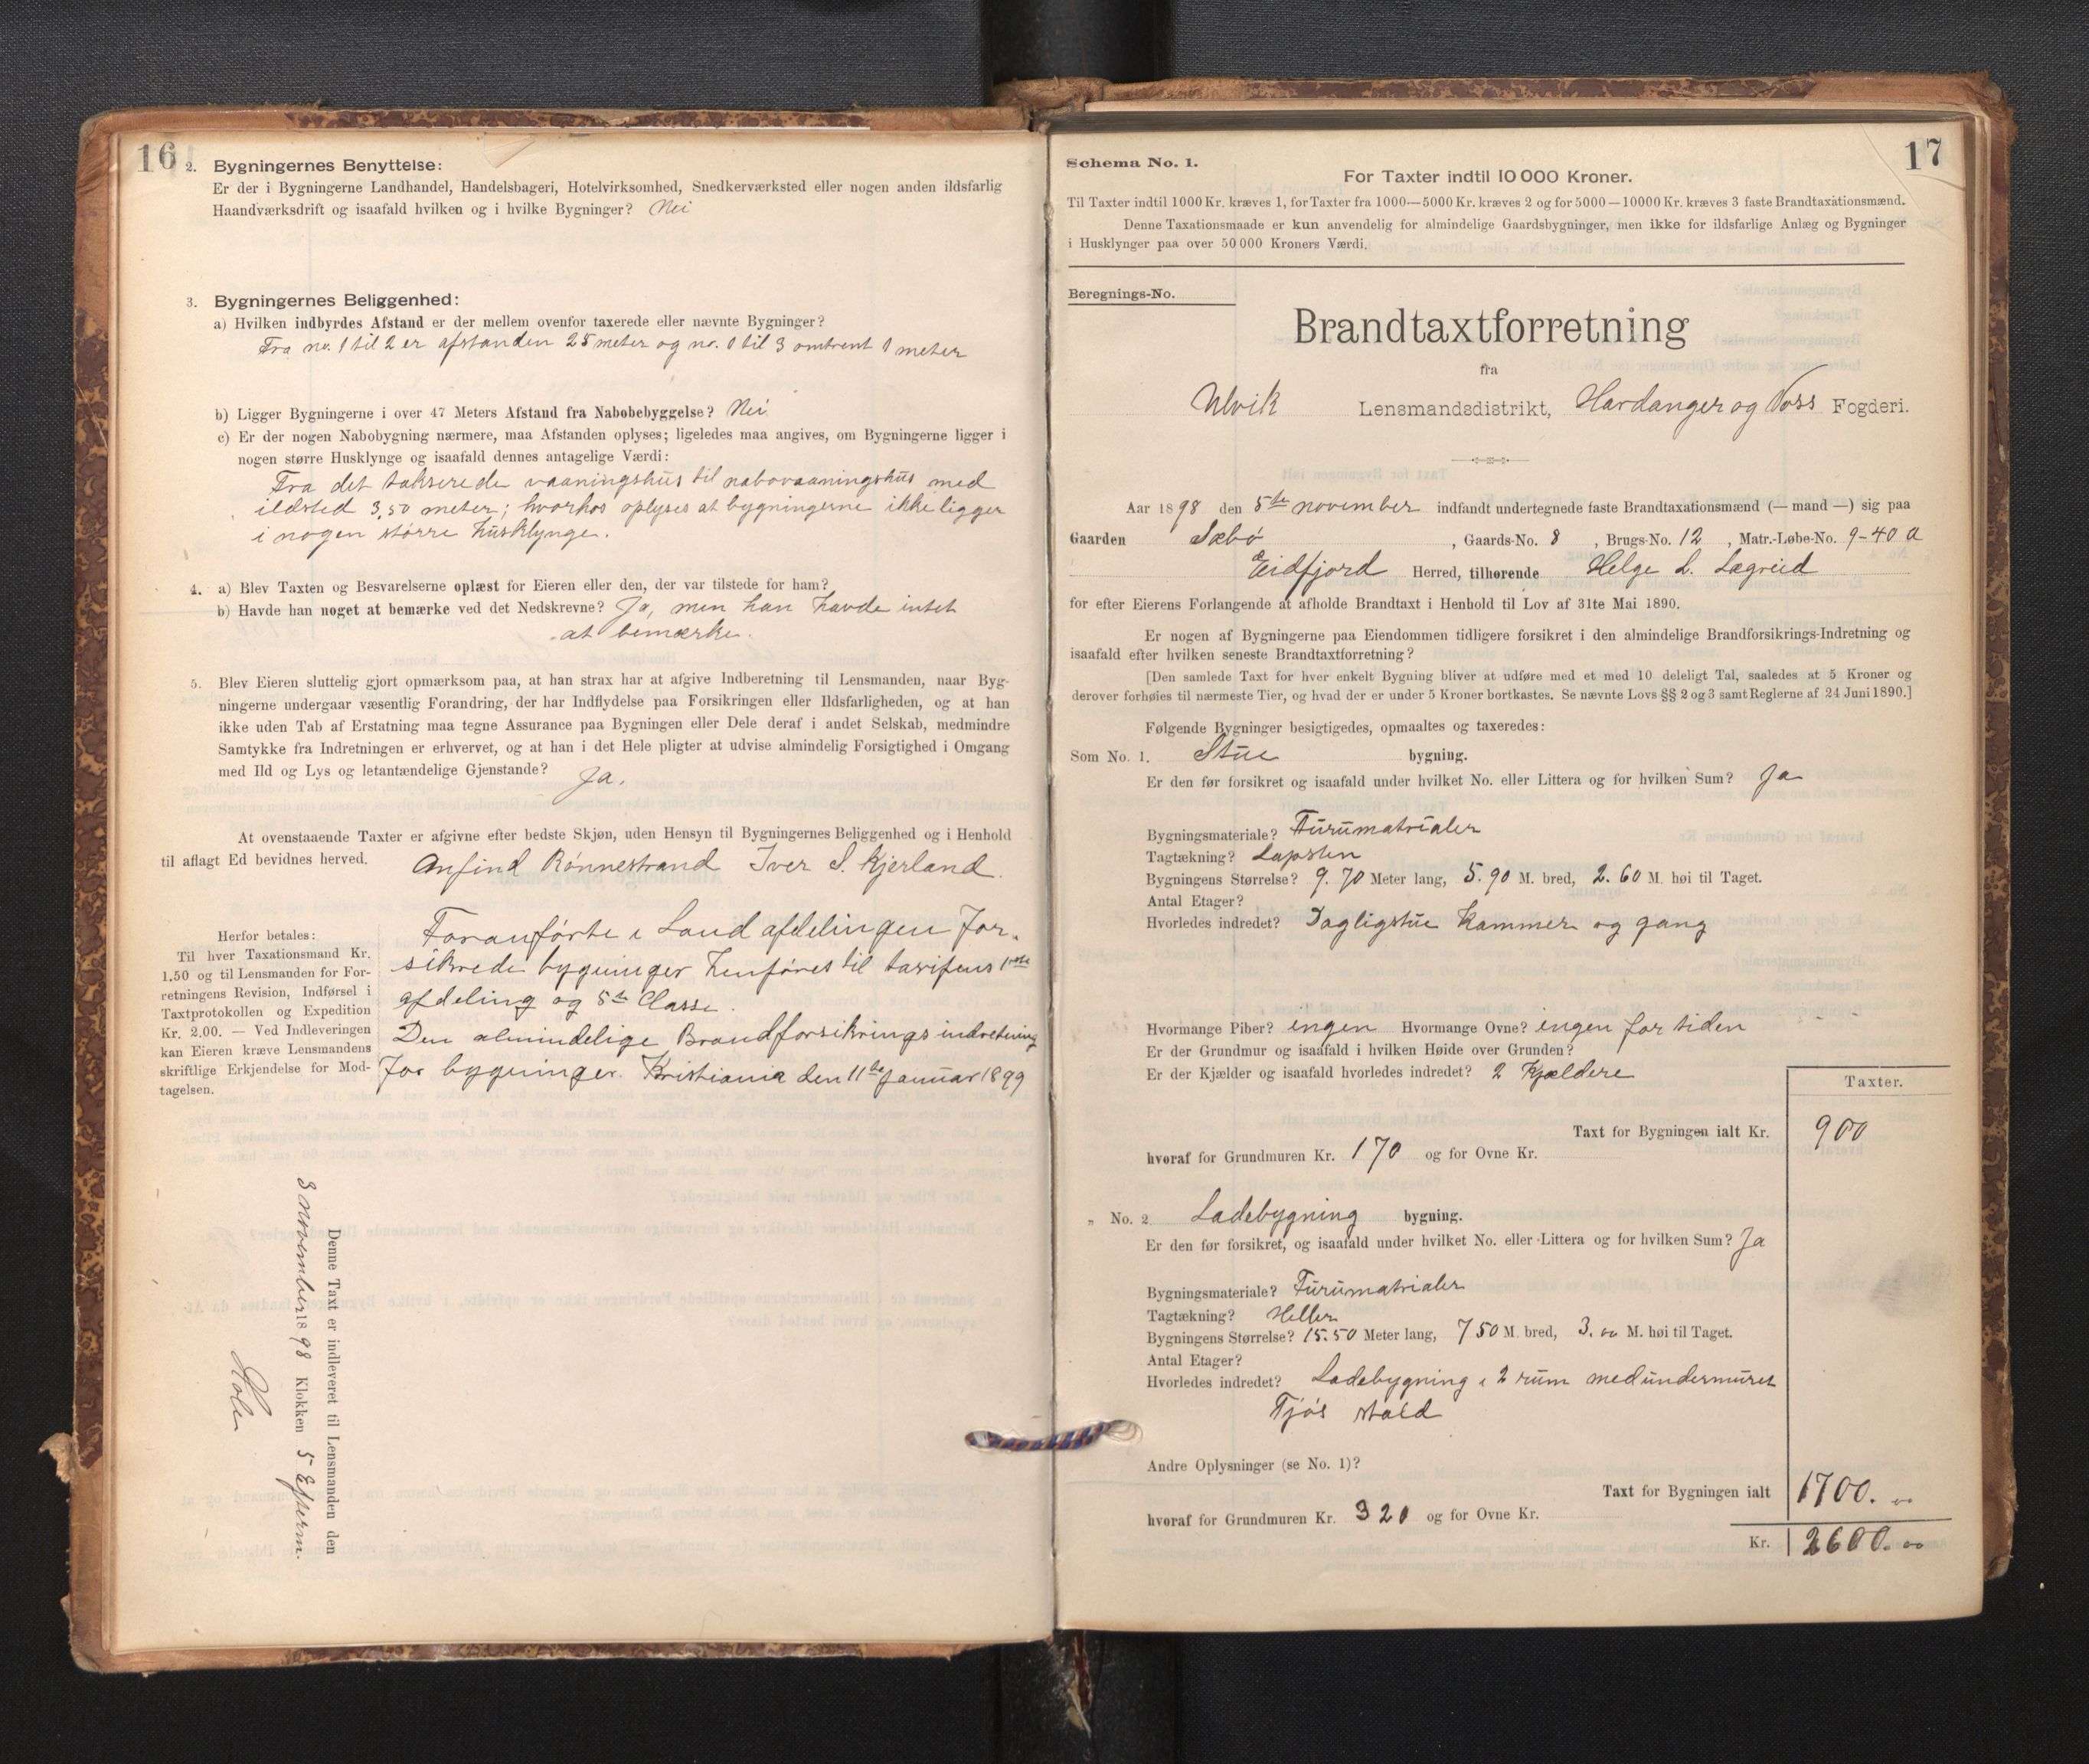 16
2. Bygningernes Benyttelse:
Er der i Bygningerne Landhandel, Handelsbageri, Hotelvirksomhed, Snedkerværksted eller nogen anden ildsfarlig
Haandværksdrift og isaafald hvilken og i hvilke Bygninger? Nei
3. Bygningernes Beliggenhed:
a) Hvilken indbyrdes Afstand er der mellem ovenfor taxerede eller nævnte Bygninger?
Fra no. 1 til 2 er afstanden 25 meter og no. 1 til 3 omtrent 1 meter
b) Ligger Bygningerne i over 47 Meters Afstand fra Nabobebyggelse? Nei
c) Er der nogen Nabobygning nærmere, maa Afstanden oplyses; ligeledes maa angives, om Bygningerne ligger i
nogen større Husklynge og isaafald dennes antagelige Værdi:
Fra det takserede vaaningshus til nabovaaningshus med
ildsted 3,50 meter; hvorhos oplyses at bygningerne ikke ligger
i nogen større husklynge.
4. a) Blev Taxten og Besvarelserne oplæst for Eieren eller den, der var tilstede for ham?
b) Havde han noget at bemærke ved det Nedskrevne? Ja, men han havde intet
at bemærke.
5. Blev Eieren sluttelig gjort opmærksom paa, at han strax har at afgive Indberetning til Lensmanden, naar Byg-
ningerne undergaar væsentlig Forandring, der har Indflydelse paa Forsikringen eller Ildsfarligheden, og at han
ikke uden Tab af Erstatning maa tegne Assurance paa Bygningen eller Dele deraf i andet Selskab, medmindre
Samtykke fra Indretningen er erhvervet, og at han i det Hele pligter at udvise almindelig Forsigtighed i Omgang
med Ild og Lys og letantændelige Gjenstande? Ja.
At ovenstaaende Taxter er afgivne efter bedste Skjøn, uden Hensyn til Bygningernes Beliggenhed og i Henhold
til aflagt Ed bevidnes herved. Anfind Rønnestrand Iver S. Kjerland.
Foranførte i Land afdelingen for-
sikrede bygninger henføres til tarifens 1ste
afdeling og 5te Classe.
Den almindelige Brandforsikrings indretning
for bygninger. Kristiania den 11te Januar 1899
Herfor betales:
Til hver Taxationsmand Kr.
1.50 og til Lensmanden for For-
retningens Revision, Indførsel i
Taxtprotokollen og Expedition
Kr. 2.00. — Ved Indleveringen
kan Eieren kræve Lensmandens
skriftlige Erkjendelse for Mod-
tagelsen.
Denne Taxt er indleveret til Lensmanden den
8 november 1898 Klokken 5 Efterm.
17
Schema No. 1.
For Taxter indtil 10 000 Kroner.
Til Taxter indtil 1000 Kr. kræves 1, for Taxter fra 1000—5000 Kr. kræves 2 og for 5000—10000 Kr. kræves 3 faste Brandtaxationsmænd.
Denne Taxationsmaade er kun anvendelig for almindelige Gaardsbygninger, men ikke for ildsfarlige Anlæg og Bygninger
i Husklynger paa over 50 000 Kroners Værdi.
Beregnings-No.
Brandtaxtforretning
fra
Ulvik Lensmandsdistrikt, Hardanger og Voss Fogderi.
Aar 1898 den 5te november indfandt undertegnede faste Brandtaxationsmænd (— mand —) sig paa
Gaarden Sæbø, Gaards-No. 8, Brugs-No. 12, Matr.-Løbe-No. 9-40 a
Eidfjord Herred, tilhørende Helge L. Lægreid
for efter Eierens Forlangende at afholde Brandtaxt i Henhold til Lov af 31te Mai 1890.
Er nogen af Bygningerne paa Eiendommen tidligere forsikret i den almindelige Brandforsikrings-Indretning og
isaafald efter hvilken seneste Brandtaxtforretning?
[Den samlede Taxt for hver enkelt Bygning bliver at udføre med et med 10 deleligt Tal, saaledes at 5 Kroner og
derover forhøies til nærmeste Tier, og hvad der er under 5 Kroner bortkastes. Se nævnte Lovs §§ 2 og 3 samt Reglerne af 24 Juni 1890.]
Følgende Bygninger besigtigedes, opmaaltes og taxeredes:
Som No. 1. Stue bygning.
Er den før forsikret og isaafald under hvilket No. eller Littera og for hvilken Sum? Ja
Bygningsmateriale? Furumatrialer
Tagtækning? Lapsten
Bygningens Størrelse? 9.70 Meter lang, 5.90 M. bred, 2.60 M. høi til Taget.
Antal Etager?
Hvorledes indredet? Dagligstue kammer og gang
Hvormange Piber? ingen Hvormange Ovne? ingen for tiden
Er der Grundmur og isaafald i hvilken Høide over Grunden?
Er der Kjælder og isaafald hvorledes indredet? 2 Kjældere
Taxter.
Taxt for Bygningen ialt Kr. 900
hvoraf for Grundmuren Kr. 170 og for Ovne Kr.
„ No. 2 Ladebygning bygning.
Er den før forsikret, og isaafald under hvilket No. eller Littera og for hvilken Sum? Ja
Bygningsmateriale? Furumatrialer
Tagtækning? Heller
Bygningens Størrelse? 15.50 Meter lang, 7 50 M. bred, 3.00 M. høi til Taget.
Antal Etager?
Hvorledes indredet? Ladebygning i 2 rum med undermuret
Fjøs stald
Andre Oplysninger (se No. 1)?
Taxt for Bygningen ialt 1700.00
hvoraf for Grundmuren Kr. 320 og for Ovne Kr.
Kr. 2600.00